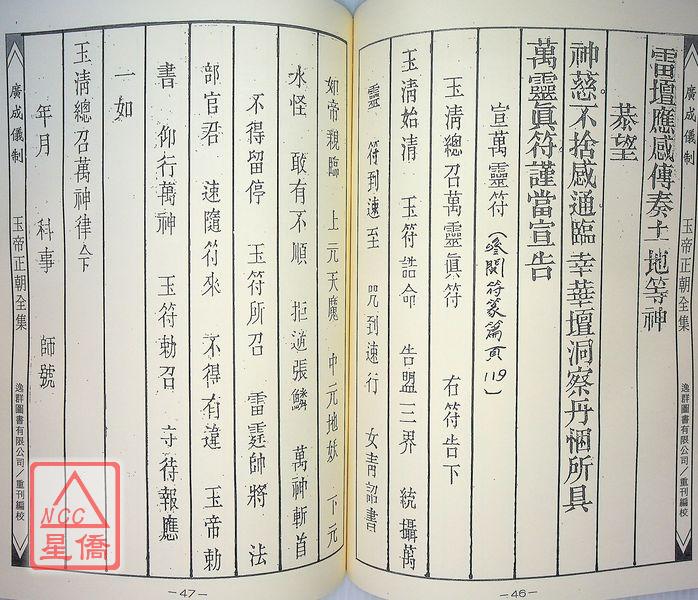 廣成儀制 玉帝正朝全集 逸群圖書有限公司／重刊編校
雷壇應感傳奏土地等神
恭望
神慈不捨感通臨幸華壇洞察丹悃所具
萬靈真符謹當宣告
宣萬靈符（參閱符篆篇頁119）
玉清總召萬靈真符 右符告下
玉清始清 玉符誥命 告盟三界 統攝萬
靈 符到速至 咒到速行 女青詔書
—46—
如帝親臨 上元天魔 中元地妖 下元
水怪 敢有不順 拒逆張鱗 萬神斬首
不得留停 玉符所召 雷霆帥將 法
部官君 速隨符來 不得有違 玉帝勅
書 仰行萬神 玉符勅召 守待報應
一如
玉清總召萬神律令
年月 科事 師號
廣成儀制 玉帝正朝全集 逸群圖書有限公司／重刊編校
—47—
NCC
星僑